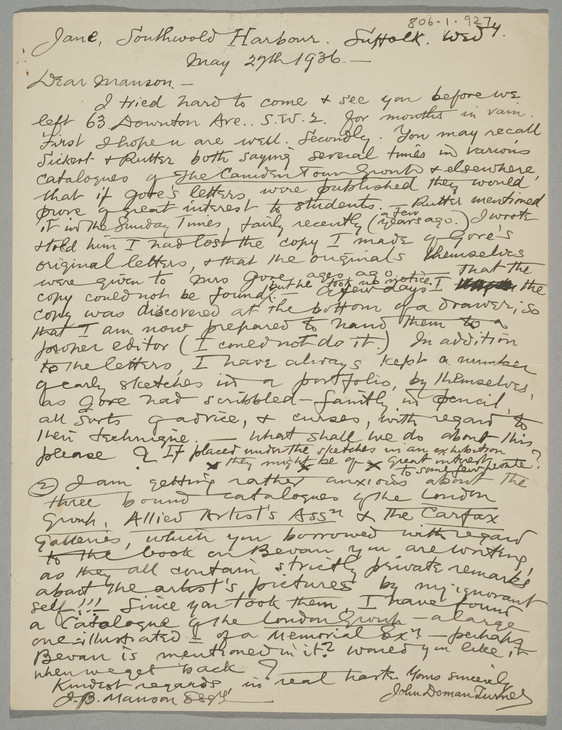 806.1.927
Jane, Southwold Harbour. Suffolk. Wedy.
May 27th 1936.—
Dear Manson.—
I tried hard to come & see you before we
left 63 Downton Ave.. S.W.2. for months in vain.
First I hope u are well. Secondly. You may recall
Sickert & Rutter both saying several times in various
catalogues of The Camden Town Group & elsewhere,
that if Gore's letters were published they would
prove of great interest to students. — Rutter mentioned
it in the Sunday Times, fairly recently (a few years ago.) I wrote
& told him I had lost the copy I made of Gore's
original letters, & that the originals themselves
were given to Mrs Gore ages ago, & that the
copy could not be found; but he took no notice. A few days I the
copy was discovered at the bottom of a drawer; so
that I am now prepared to hand them to a
proper editor (I could not do it.) In addition
to the letters, I have always kept a number
of early sketches in a portfolio, by themselves,
as Gore had scribbled — faintly in pencil,
all sorts of advice, & curses, with regard to
their technique. — What shall we do about this?
please ? If placed under the sketches in an exhibition
x they might be of x great interest
to some few private.
② I am getting rather anxious about the
three bound catalogues of the London
Group: Allied Artist's Assn & the Carfax
Galleries, which you borrowed with regard
to the book on Bevan you are writing,
as they all contain strictly private remarks
about the artist's pictures by my ignorant
self!!! Since you took them I have found
a Catalogue of the London Group — a large
one — illustrated — of a Memorial Exn — perhaps
Bevan is mentioned in it? Would you like it
when we get back ?
Kindest regards in real haste Yours sincerely
J. B. Manson Esqre John Doman Turner